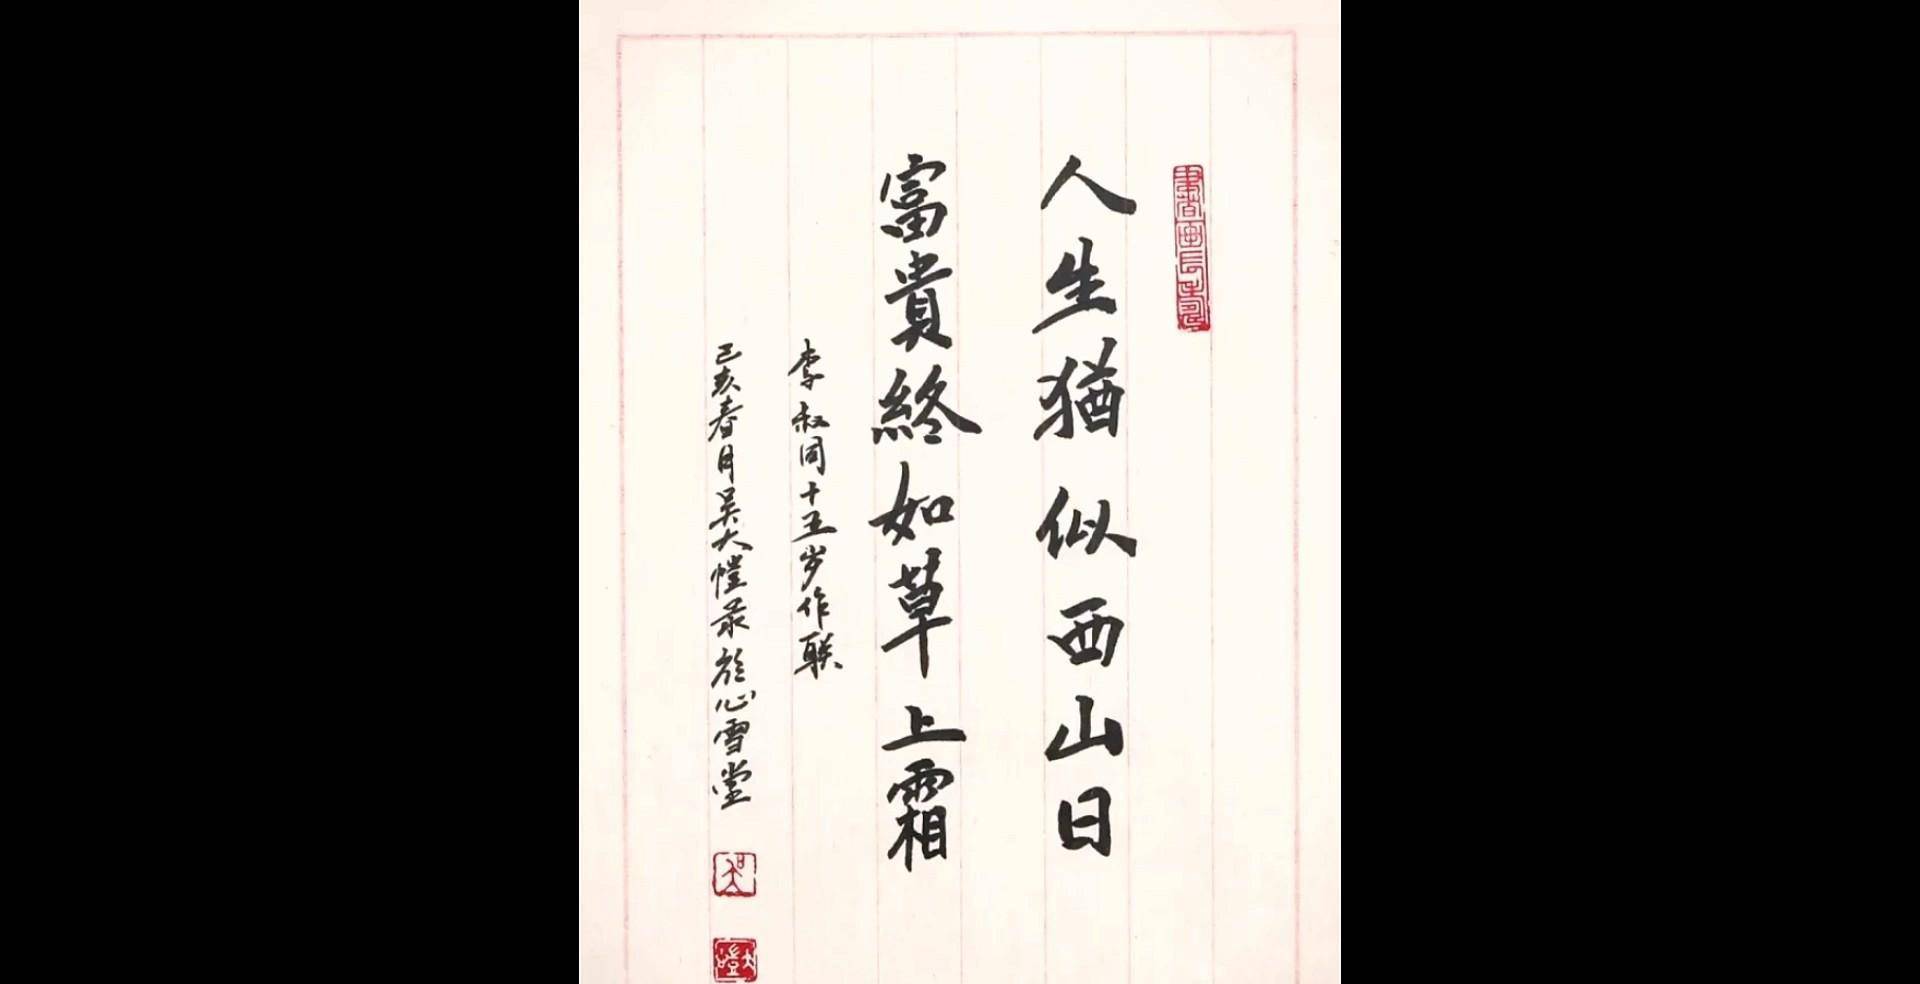 人生猶似西山日
富貴終如草上霜
李叔同十五岁作联
己亥春月吴大愷录於心雪堂